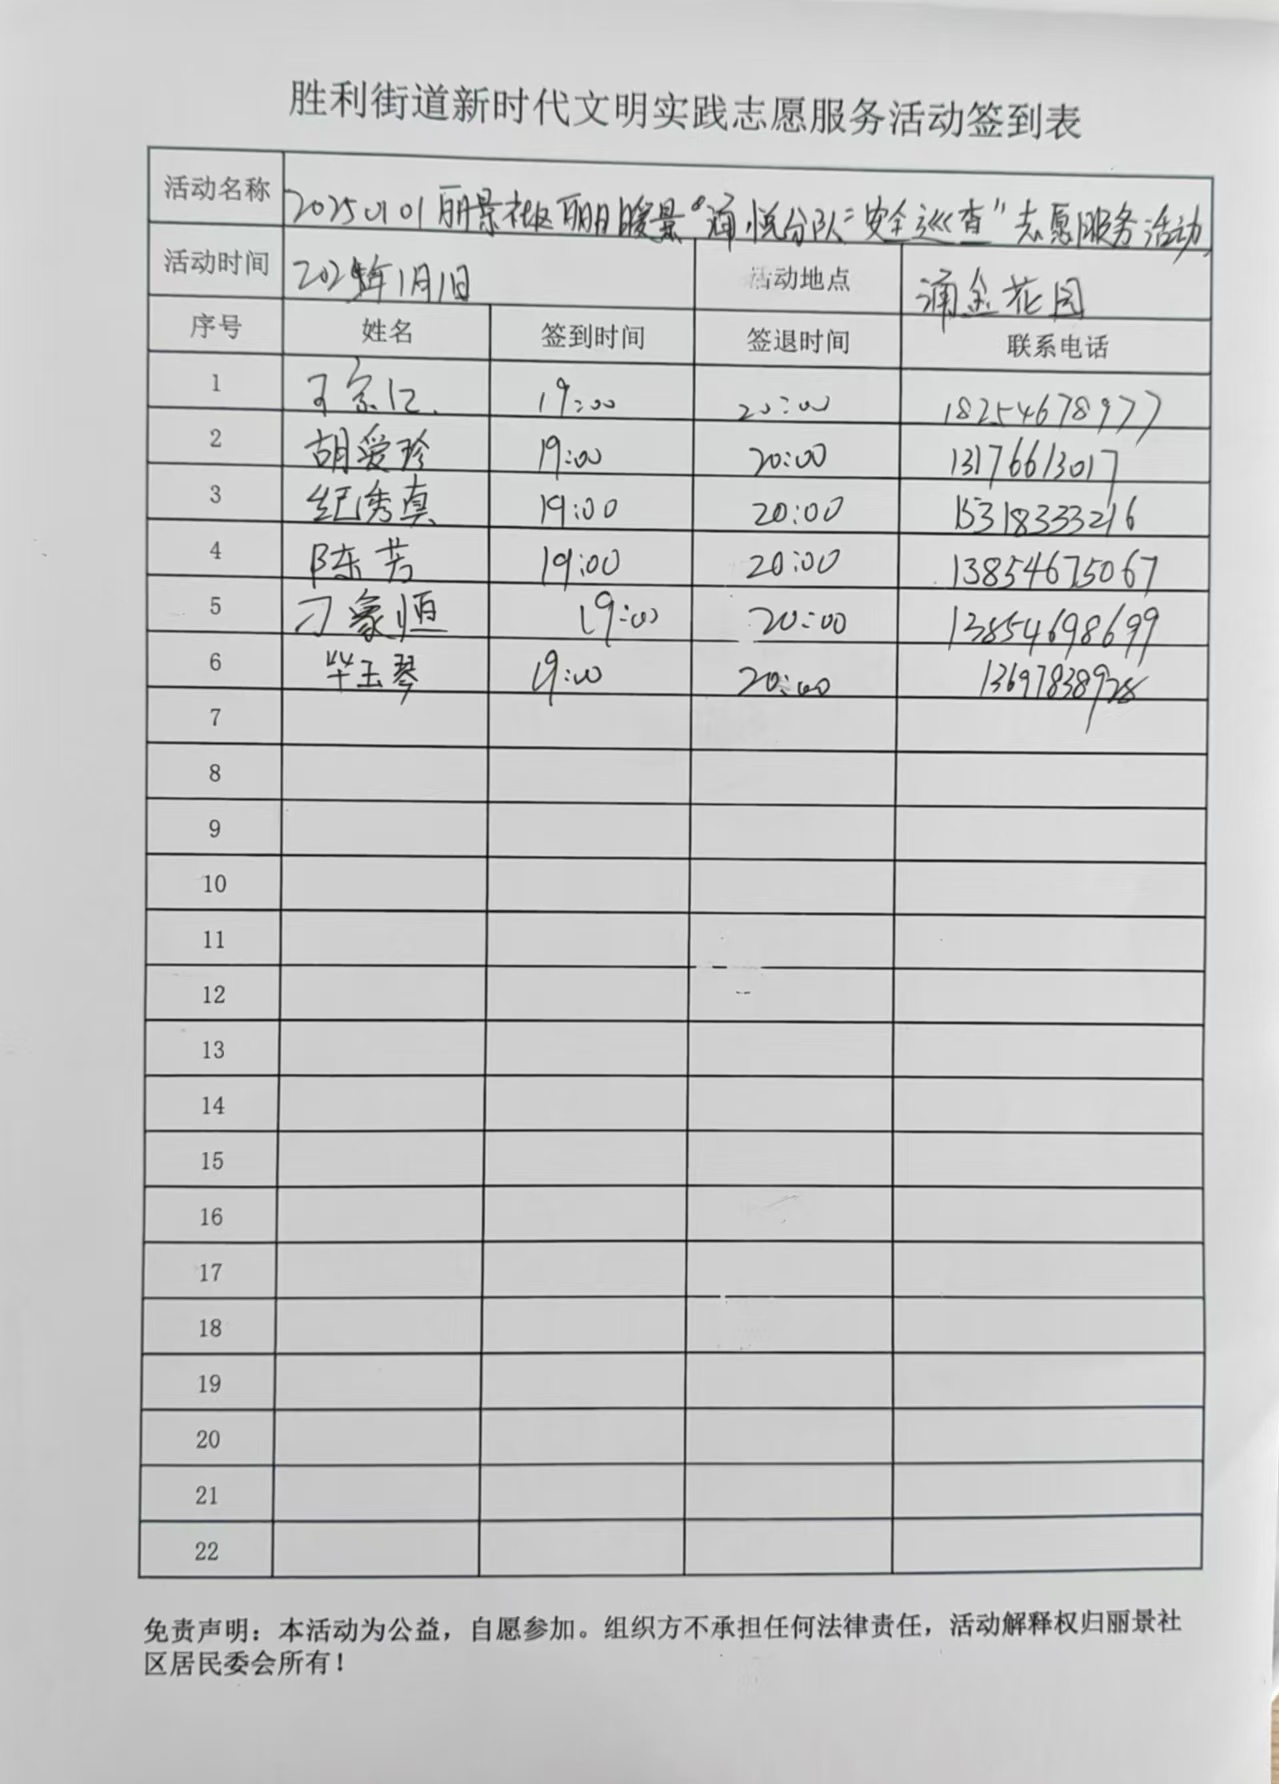 胜利街道新时代文明实践志愿服务活动签到表
活动名称 20250101丽景社区丽日暖景“涌悦分队”“安全巡查”志愿服务活动
活动时间 2025年1月1日 活动地点 涌金花园
序号 姓名 签到时间 签退时间 联系电话
1 19:00 20:00 18254678977
2 胡爱珍 19:00 20:00 13176613017
3 纪秀真 19:00 20:00 15318333216
4 陈芳 19:00 20:00 13854675067
5 刁象恒 19:00 20:00 13854698699
6 毕玉琴 19:00 20:00 13697838928
7
8
9
10
11
12
13
14
15
16
17
18
19
20
21
22
免责声明：本活动为公益，自愿参加。组织方不承担任何法律责任，活动解释权归丽景社
区居民委会所有！